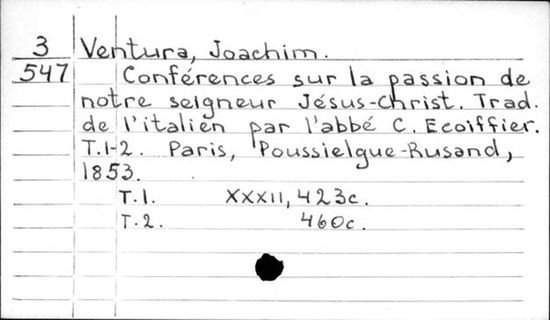 3 Ventura, Joachim.
547 Conférences sur la passion de
notre seigneur Jésus-Christ. Trad.
de l'italien par l'abbé C. Ecoiffier.
T.1-2. Paris, Poussielgue-Rusand,
1853.
T.1. XXXII, 423c.
T.2. 460c.